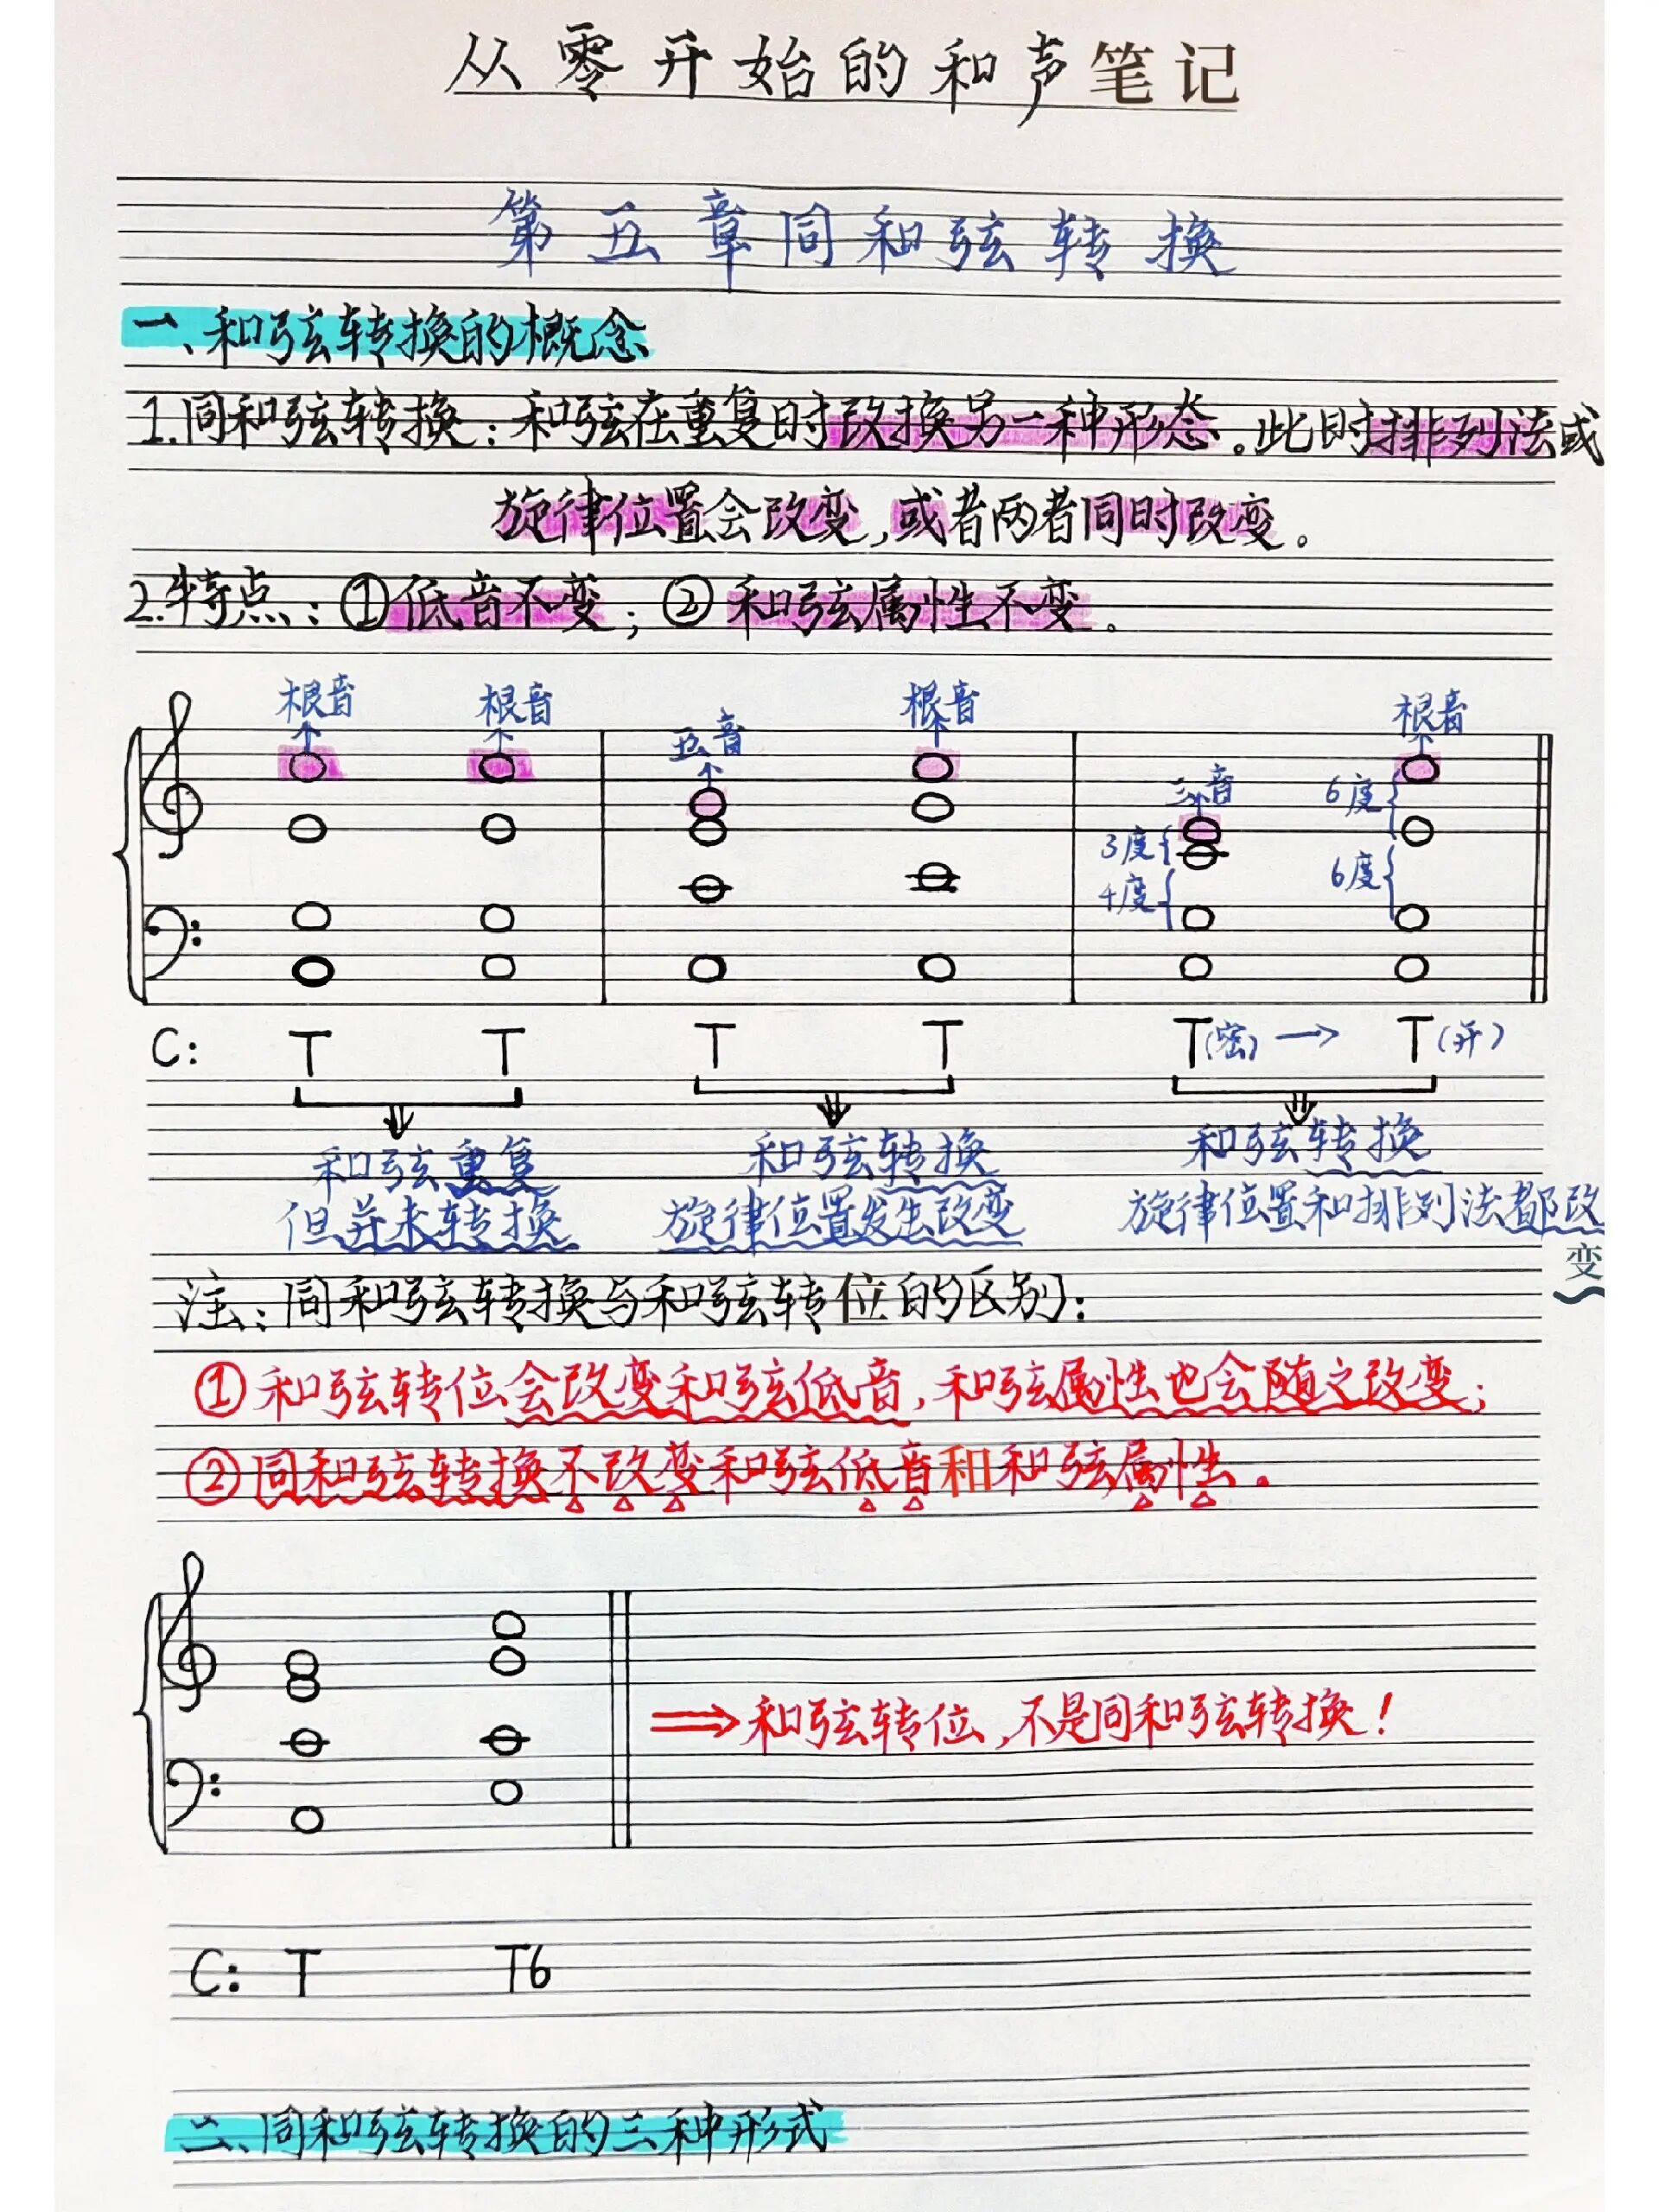 从零开始的和声笔记
第五章同和弦转换
一、和弦转换的概念
1.同和弦转换:和弦在重复时改换另一种形态。此时排列法或
旋律位置会改变,或者两者同时改变。
2.特点:①低音不变;②和弦属性不变。
根音 根音 五音 根音 三音 根音
3度 6度
4度 6度
C: T T T T T(密)→ T(开)
和弦重复 和弦转换 和弦转换
但并未转换 旋律位置发生改变 旋律位置和排列法都改
变
注:同和弦转换与和弦转位的区别:
①和弦转位会改变和弦低音,和弦属性也会随之改变;
②同和弦转换不改变和弦低音和和弦属性。
⇒和弦转位,不是同和弦转换!
C: T T6
二、同和弦转换的三种形式